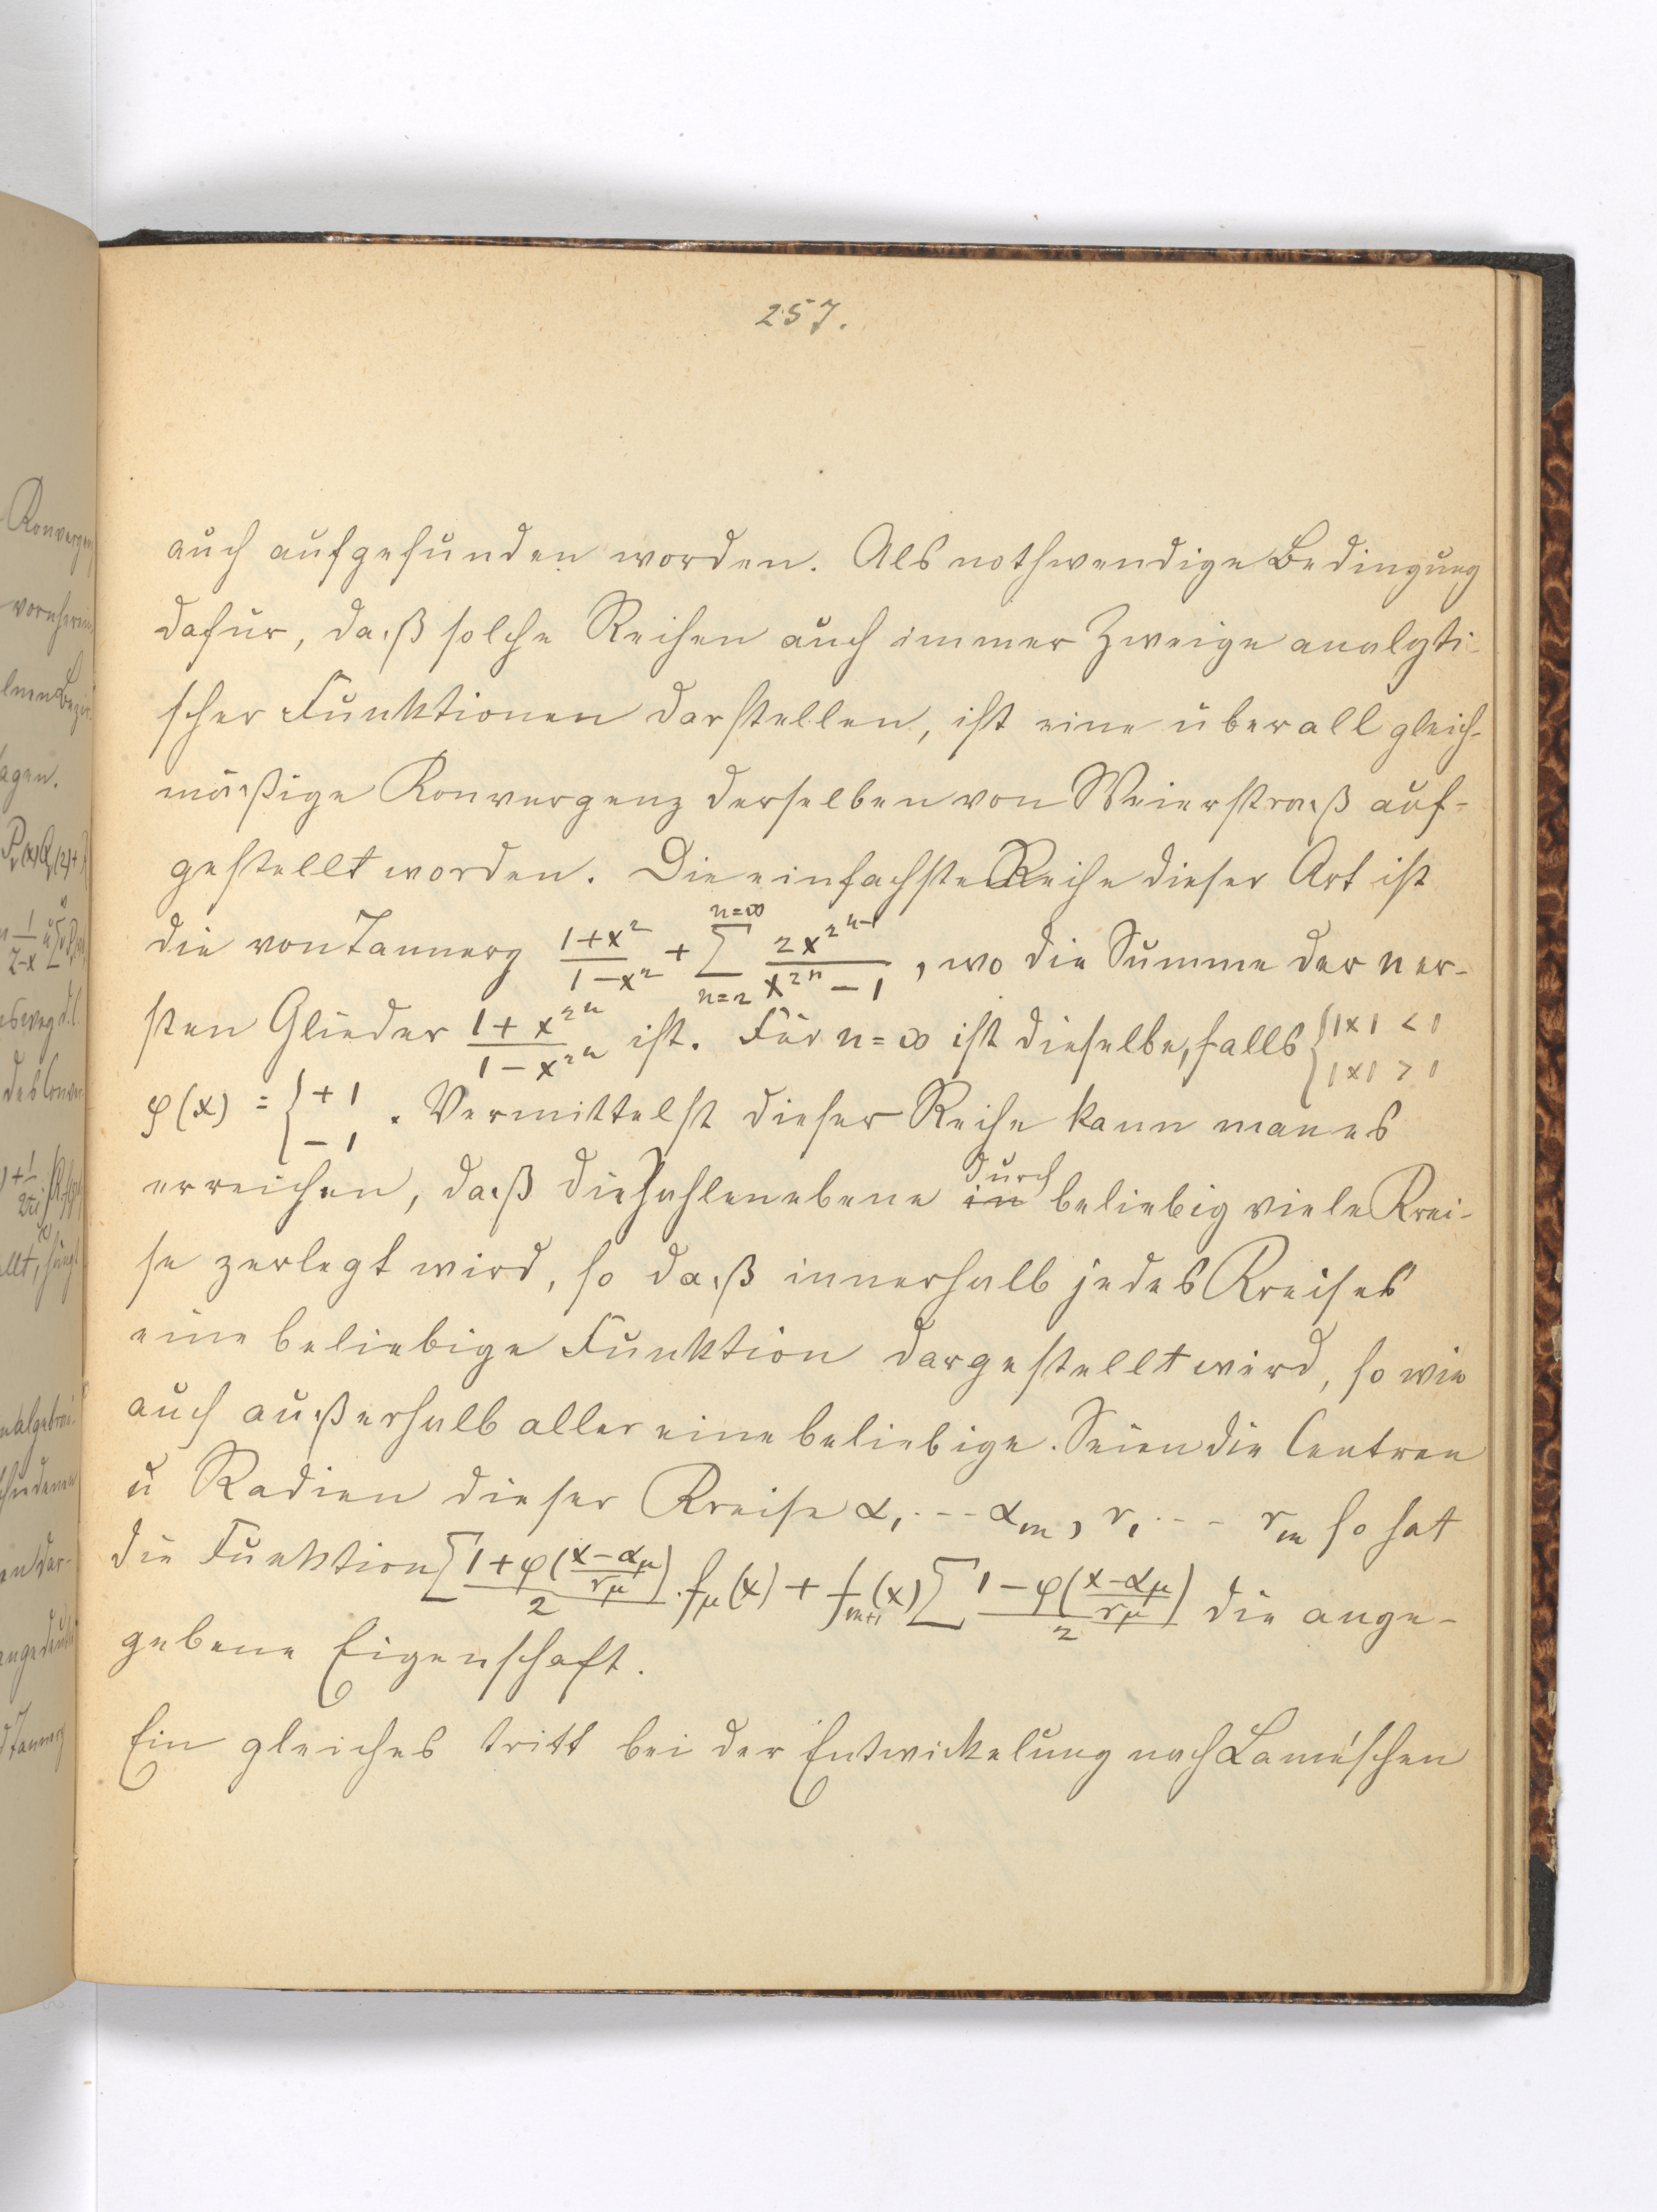 257.
auch aufgefunden worden. Als nothwendige Bedingung
dafür, daß solche Reihen auch immer Zweige analyti-
scher Funktionen darstellen, ist eine überall gleich-
mäßige Konvergenz derselben von Weierstraß auf-
gestellt worden. Die einfachste Reihe dieser Art ist
die von Tannery \frac{1+x^2}{1-x^2} + \sum_{n=2}^{n=\infty} \frac{2x^{2^{n-1}}}{x^{2^n}-1}, wo die Summe der n er-
sten Glieder \frac{1+x^{2^n}}{1-x^{2^n}} ist. Für n=∞ ist dieselbe, falls { |x| < 1 |x| > 1
φ(x) = { +1 −1 . Vermittelst dieser Reihe kann man es
erreichen, daß die Zahlenebene in durch beliebig viele Krei-
se zerlegt wird, so daß innerhalb jedes Kreises
eine beliebige Funktion dargestellt wird, so wie
auch außerhalb aller eine beliebige. Seien die Centren
u Radien dieser Kreise α_1 --- α_m, r_1 --- r_m so hat
die Funktion \sum \frac{1+φ(\frac{x-α_μ}{r_μ})}{2} . f_μ(x) + f_{m+1}(x) \sum \frac{1-φ(\frac{x-α_μ}{r_μ})}{2} die ange-
gebene Eigenschaft.
Ein gleiches tritt bei der Entwickelung nach Lamé'schen